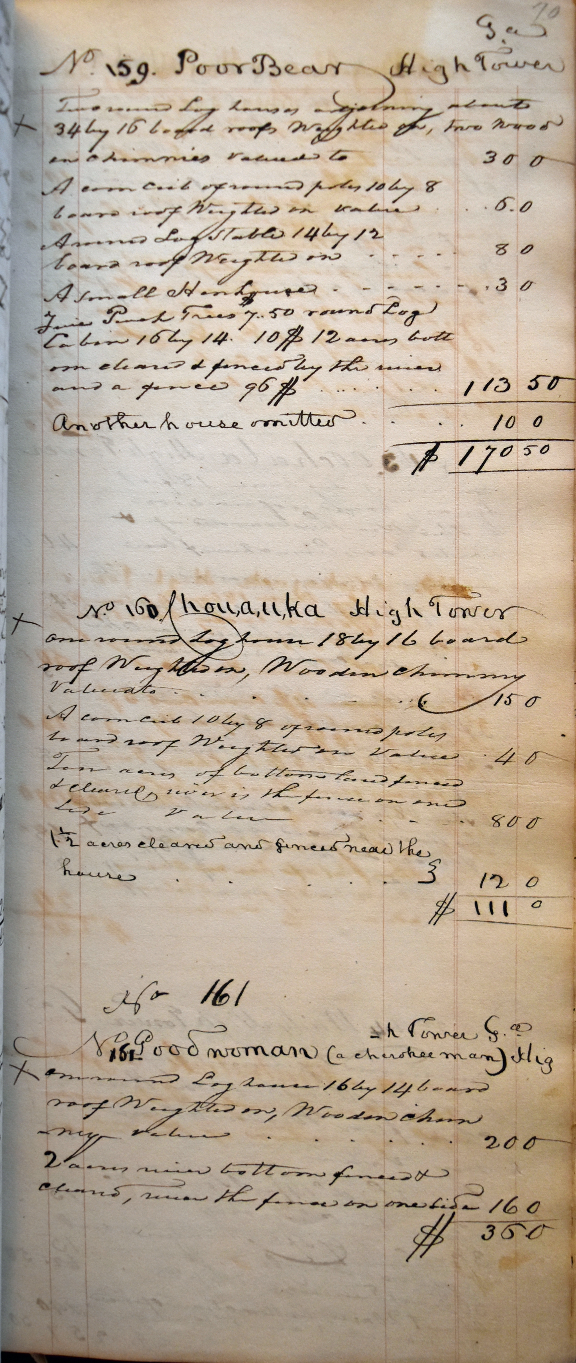 70
Ga
No. 159. Poor Bear High Tower
Two round Log houses adjoining about
34 by 16 board roofs Weighted on, two Wood
en chimnies Valued to 30 0
A corn crib of round poles 10 by 8
board roof Weighted on Value . . 6.0
A round Log Stable 14 by 12
board roof Weighted on - - - - - 8 0
A Small Henhouse - - - - - - 3 0
Five Peach Trees 7.50 round Log
Cabin 16 by 14. 10$ 12 acres bott
om cleared & fenced by the river
and a fence 96$ . . . . . 113 50
Another house omitted . . . . 10 0
$ 170 50
No 160. Chou,a,u,ka High Tower
one round Log house 18 by 16 board
roof Weighted on, Wooden chimny
Value to . . . . . 15 0
A corn crib 10 by 8 of round poles
board roof Weighted on Value . 4 0
acres of bottom land fenced
& cleared, river is the fence on one
side Value - - - 80 0
1½ acres cleared and fenced near the
house . . . . . } 12 0
$ 111 0
No 161
No 161 Good woman (a cherokee man) Hig
-h Tower Ga
one round Log house 16 by 14 board
roof Weighted on, Wooden chim
-ney Value . . . . . . 20 0
2 acres river bottom fenced &
cleared, river the fence on one side 16 0
$ 36 0